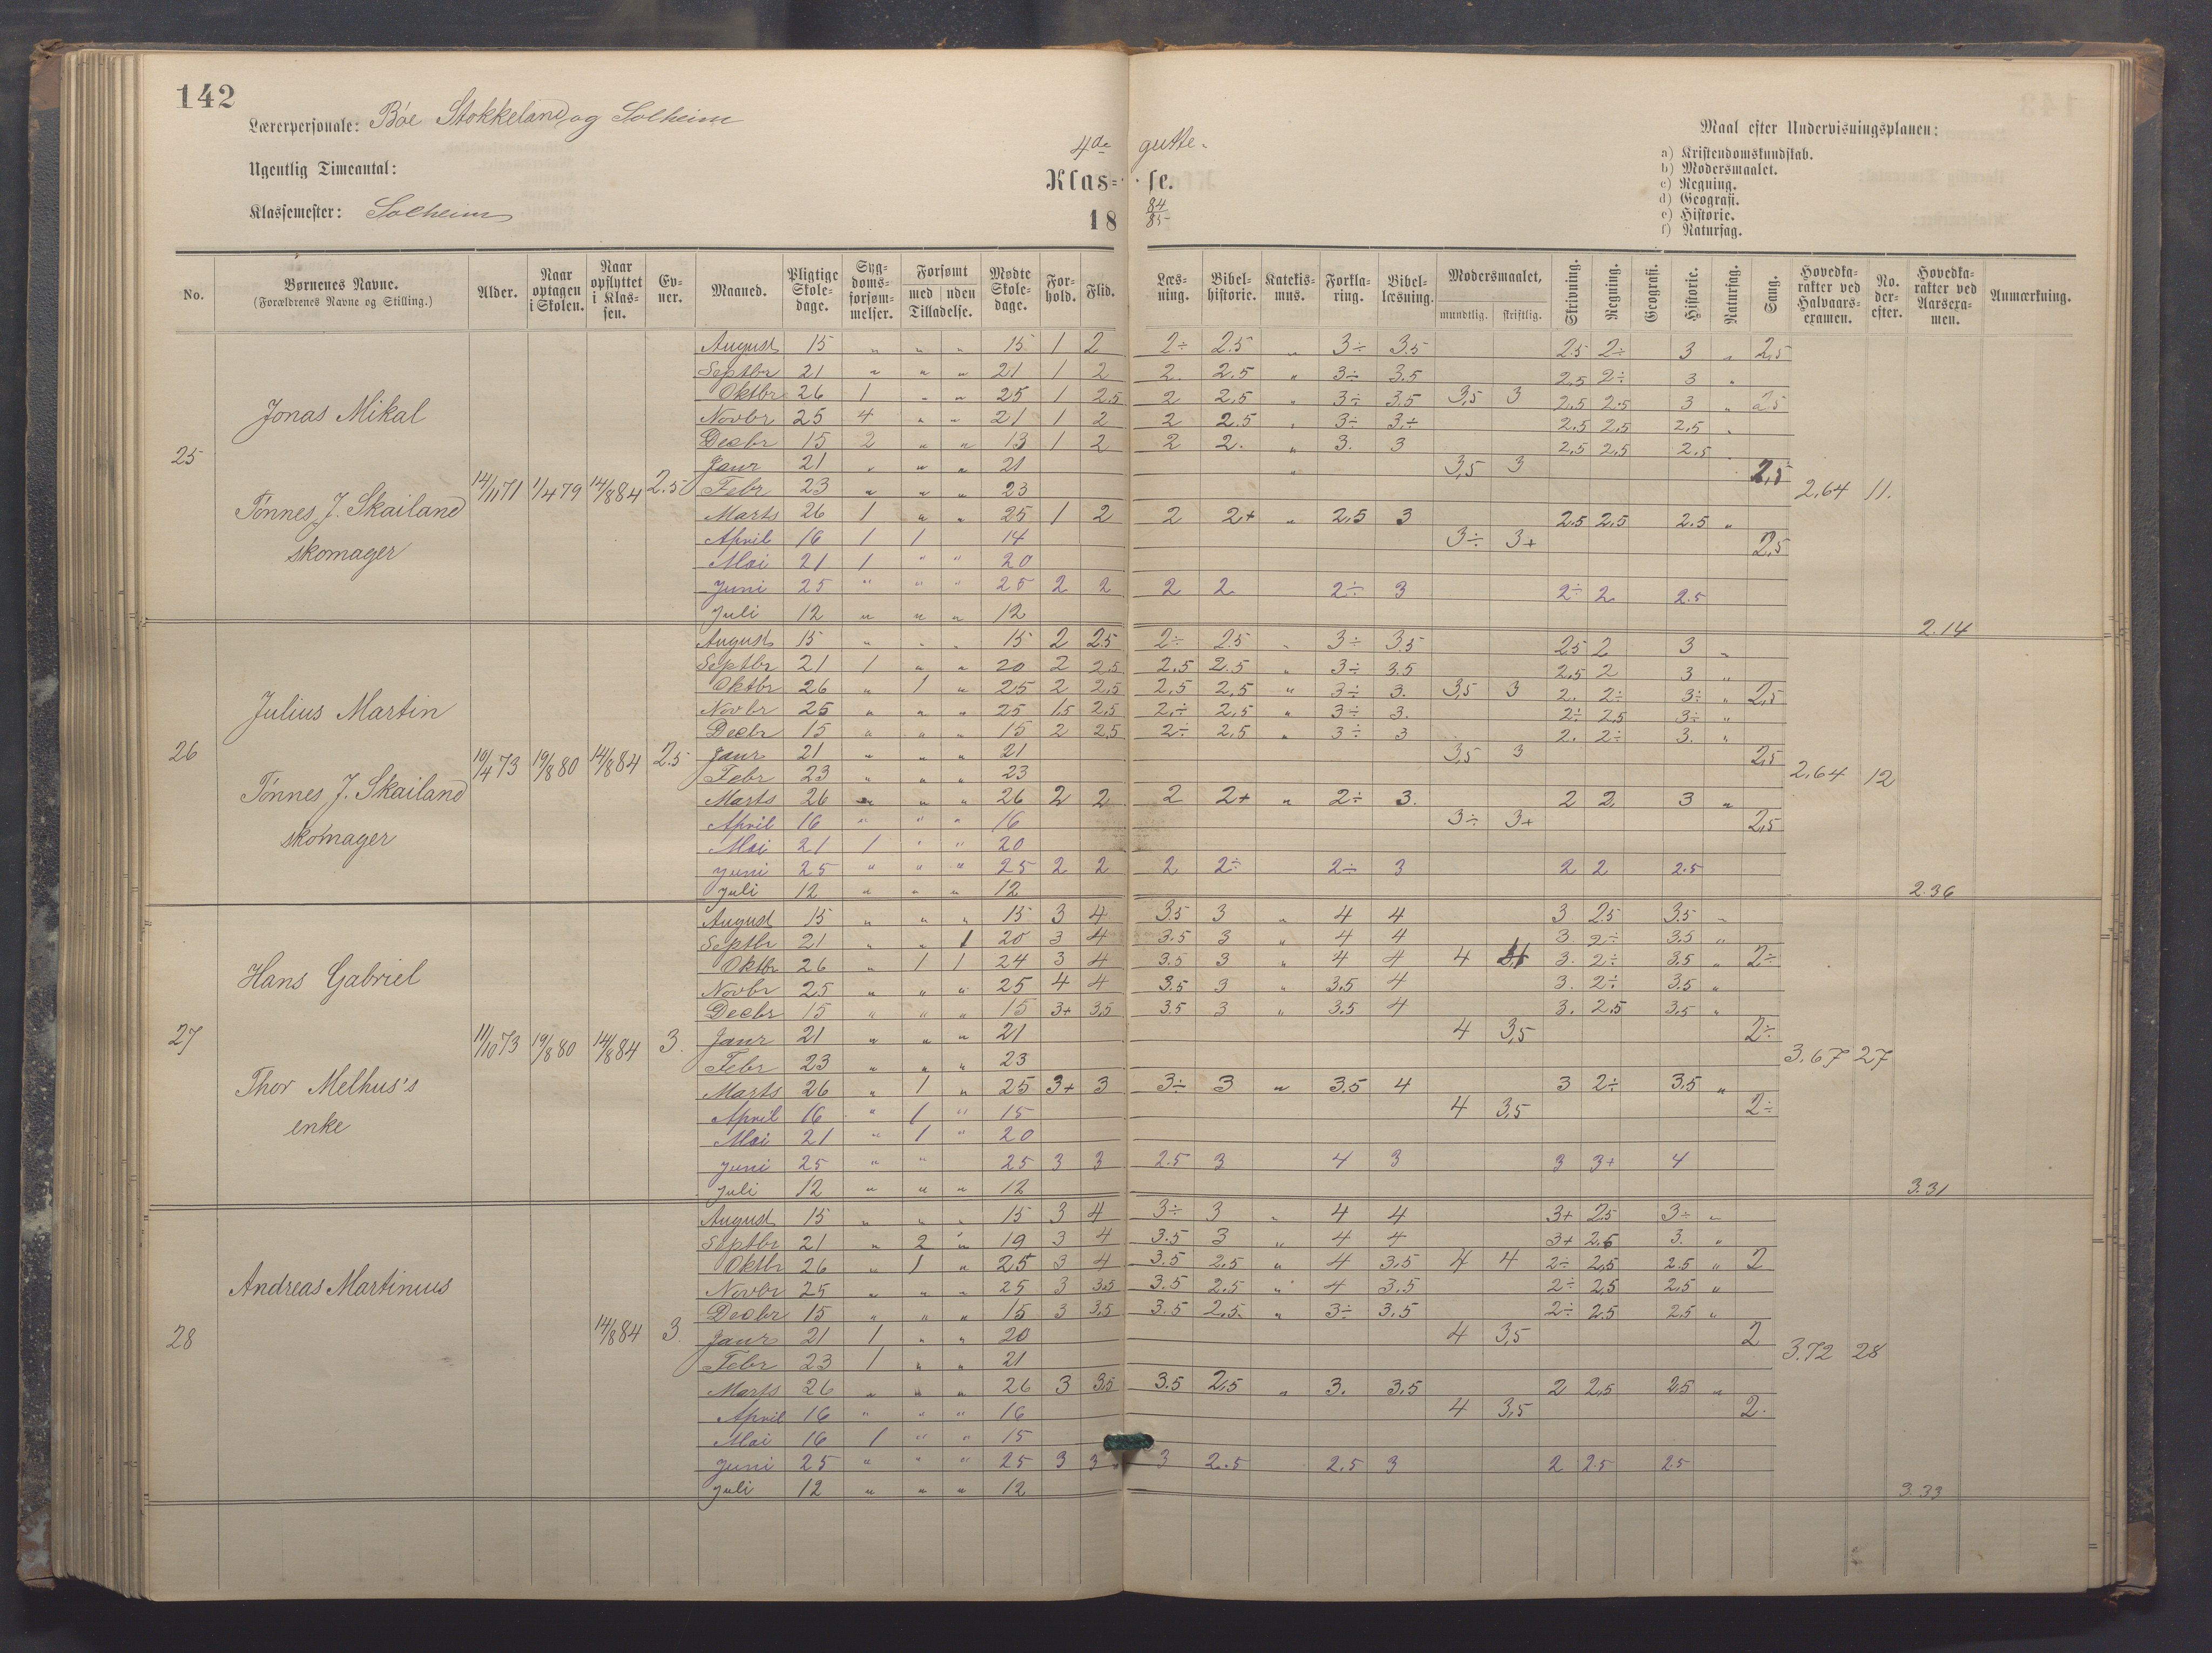 142
Lærerpersonale: Bøe Stokkeland og Solheim
4de gutte-
Ugentlig Timeantal:
Klas- se.
Klassemester: Solheim
18 84/85
Maal efter Undervisningsplanen:
a) Kristendomskundskab.
b) Modersmaalet.
c) Regning.
d) Geografi.
e) Historie.
f) Naturfag.
No. | Børnenes Navne. (Forældrenes Navne og Stilling.) | Alder. | Naar optagen i Skolen. | Naar opflyttet i Klassen. | Evner. | Maaned. | Pligtige Skoledage. | Sygdomsforsømmelser. | Forsømt med uden Tilladelse. | Mødte Skoledage. | Forhold. | Flid. | Læsning. | Bibelhistorie. | Katekismus. | Forklaring. | Bibellæsning. | Modersmaalet, mundtlig. skriftlig. | Skrivning. | Regning. | Geografi. | Historie. | Naturfag. | Sang. | Hovedkarakter ved Halvaarsexamen. | No. derefter. | Hovedkarakter ved Aarsexamen. | Anmærkning.
25 Jonas Mikal
Tønnes J. Skailand
skomager
14/11 71 1/4 79 14/8 84 2.5
August 15 " " " 15 1 2 2÷ 2.5 " 3÷ 3.5 2.5 2÷ 3 " 2,5
Septbr 21 " " " 21 1 2 2. 2.5 " 3÷ 3.5 2.5 2÷ 3 "
Oktbr 26 1 " " 25 1 2.5 2 2,5 " 3÷ 3.5 3,5 3 2,5 2.5 3 " 2,5
Novbr 25 4 " " 21 1 2 2 2.5 " 3÷ 3,÷ 2.5 2,5 2,5 "
Decbr 15 2 " " 13 1 2 2 2. " 3. 3 2,5 2,5 2.5
Janr 21 " " " 21 " 3,5 3 2,5
Febr 23 " " " 23 2,64 11.
Marts 26 1 " " 25 1 2 2 2+ " 2,5 3 2.5 2,5 2.5 "
April 16 1 1 14 3÷ 3+ 2,5
Mai 21 1 " " 20
Juni 25 " " " 25 2 2 2 2 2÷ 3 2÷ 2 2.5
Juli 12 " " " 12 2.14
26 Julius Martin
Tønnes J. Skailand
skomager
10/4 73 19/8 80 14/8 84 2.5
August 15 " " " 15 2 2.5 2÷ 2.5 " 3÷ 3.5 2.5 2 3 "
Septbr 21 1 " " 20 2 2,5 2,5 2.5 " 3÷ 3.5 2,5 2 3 "
Oktbr 26 " 1 " 25 2 2,5 2,5 2,5 " 3÷ 3. 3,5 3 2. 2÷ 3÷ " 2,5
Novbr 25 " " " 25 1.5 2,5 2,÷ 2,5 " 3÷ 3. 2÷ 2,5 3÷ "
Decbr 15 " " " 15 2 2,5 2÷ 2,5 " 3÷ 3 2. 2÷ 3. "
Janr 21 " " " 21 3,5 3 2,5
Febr 23 " " " 23 2,64 12
Marts 26 " " " 26 2 2 2 2+ " 2÷ 3. 2 2, 3 "
April 16 " " " 16 3÷ 3+ 2,5
Mai 21 1 " " 20
Juni 25 " " " 25 2 2 2 2÷ 2÷ 3 2 2 2.5
Juli 12 " " " 12 2.36
27 Hans Gabriel
Thor Melhus's
enke
11/10 73 19/8 80 14/8 84 3.
August 15 " " " 15 3 4 3.5 3 " 4 4 3 2.5 3.5 "
Septbr 21 " " 1 20 3 4 3.5 3 " 4 4 3. 2÷ 3.5 "
Oktbr 26 " 1 1 24 3 4 3.5 3 " 4 4 4 3. 2÷ 3.5 " 2÷
Novbr 25 " " " 25 4 4 3.5 3 " 3,5 4 3. 2÷ 3.5 "
Decbr 15 " " " 15 3+ 3,5 3.5 3 " 3.5 4 3. 2,5 3,5 "
Janr 21 " " " 21 4 3,5 2÷
Febr 23 " " " 23 3.67 27
Marts 26 " 1 " 25 3+ 3 3÷ 3 " 3.5 4 3 2÷ 3,5 "
April 16 " 1 " 15 4 3,5 2÷
Mai 21 " 1 " 20
Juni 25 " " 25 3 3 2.5 3 4 3 3 3+ 4
Juli 12 " " " 12 3.31
28 Andreas Martinius
14/8 84 3.
August 15 " " " 15 3 4 3÷ 3 " 4 4 3+ 2,5 3÷ "
Septbr 21 " 2 " 19 3 4 3.5 3 " 4 4 3+ 2.5 3. "
Oktbr 26 " 1 " 25 3 4 3.5 2,5 " 4 3.5 4 4 2÷ 2,5 2.5 " 2
Novbr 25 " " " 25 3 3,5 3.5 2.5 " 4 3.5 2÷ 2,5 2,5 "
Decbr 15 " " " 15 3 3,5 3.5 2,5 " 3÷ 3.5 2÷ 2.5 2,5 "
Janr 21 1 " " 20 4 3,5 2
Febr 23 1 " " 21 3.72 28
Marts 26 " " " 26 3 3,5 3.5 2,5 " 3. 3,5 2 2,5 2,5 "
April 16 " " " 16 4 3,5 2.
Mai 16 1 " " 15
Juni 25 " " " 25 3 3 3 2.5 2.5 3 2 2.5 2.5
Juli 12 " " " 12 3.33